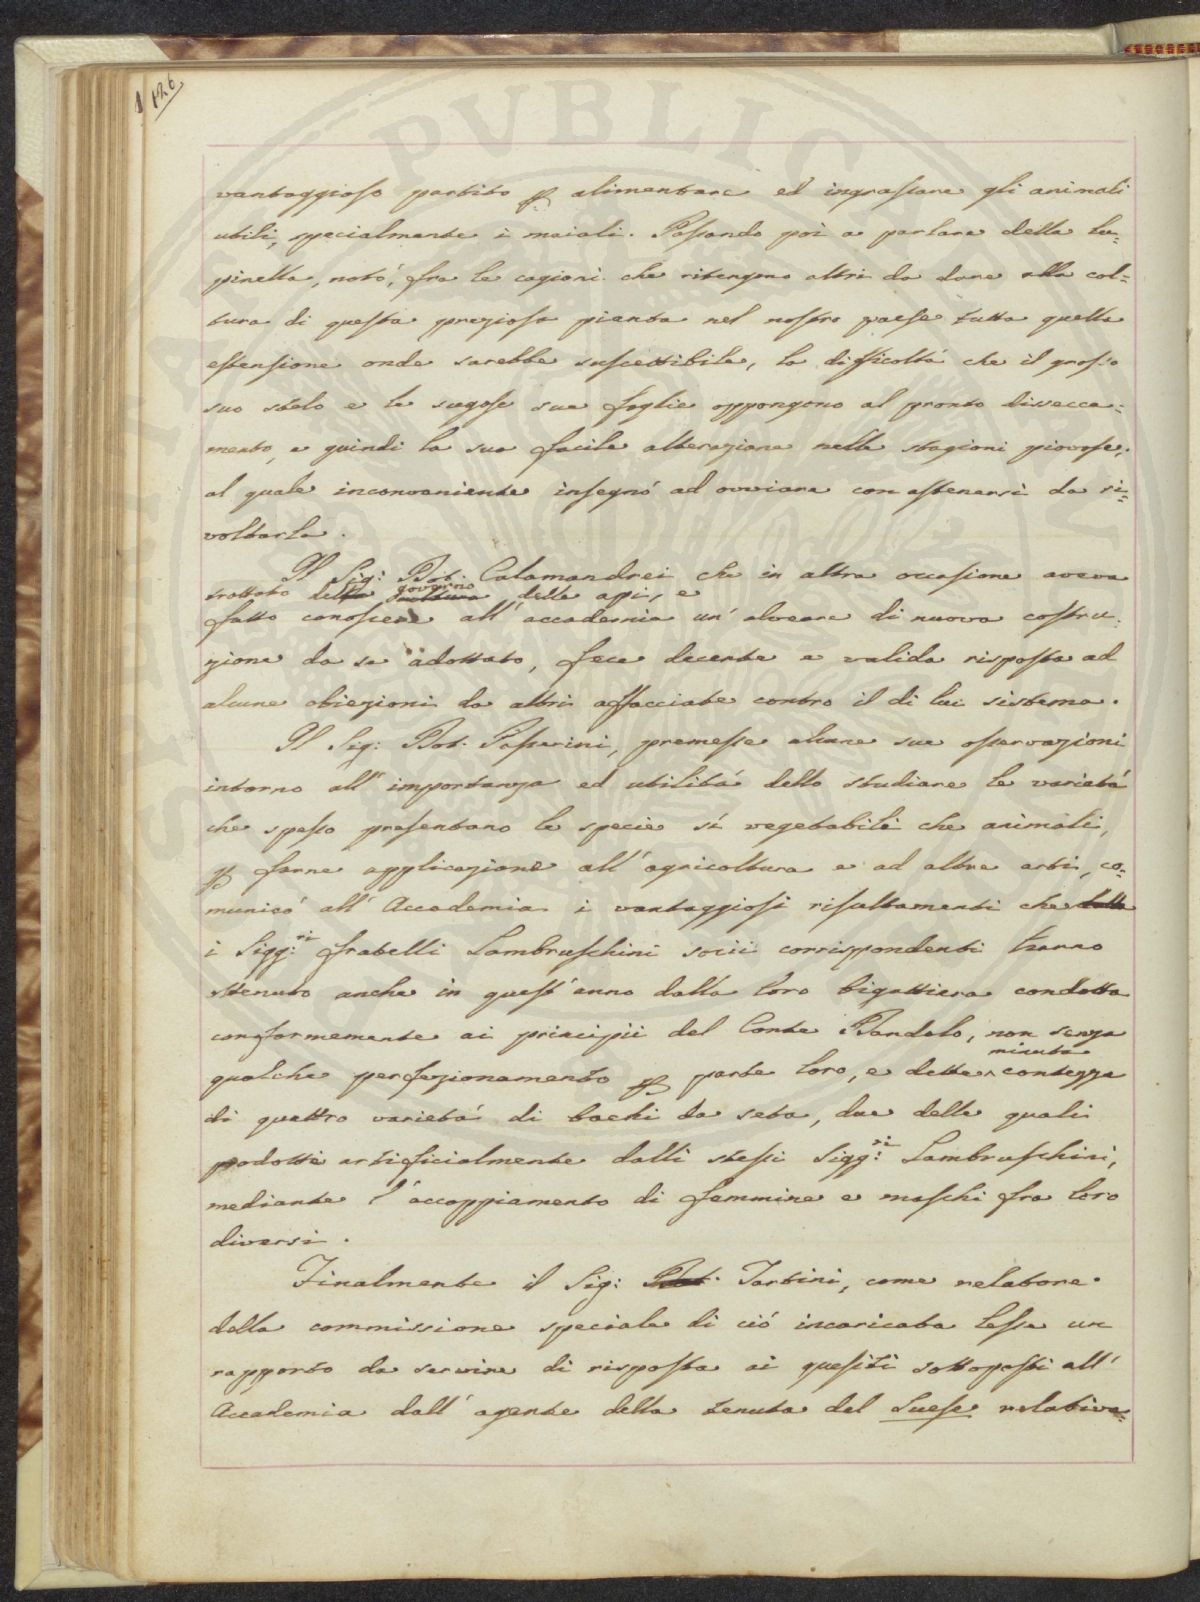 126
vantaggioso partito p alimentare ed ingrassare gli animali
utili, specialmente i maiali. Passando poi a parlare della lu=
pinella, notò, fra le cagioni che ritengono altri da dare alla col=
tura di questa preziosa pianta nel nostro paese tutta quella
estensione onde sarebbe suscettibile, la difficoltà che il grosso
suo stelo e le sugose sue foglie oppongono al pronto dissecca=
mento, e quindi la sua facile alterazione nelle stagioni piovose;
al quale inconveniente insegnò ad ovviare con astenersi da ri=
voltarla.
Il Sig: Dot. Calamandrei che in altra occasione aveva
trattato della coltura governo delle api, e
fatto conoscere all'accademia un' alveare di nuova costru=
zione da se adottato, fece decente e valida risposta ad
alcune obiezioni da altri affacciate contro il di lui sistema.
Il Sig: Dot. Passerini, premesse alcune sue osservazioni
intorno all'importanza ed utilità dello studiare le varietà
che spesso presentano le specie sì vegetabili che animali,
p farne applicazione all'agricoltura e ad altre arti, co=
municò all'Accademia i vantaggiosi risultamenti che
i Sigg:ri fratelli Lambruschini socii corrispondenti hanno
ottenuto anche in quest'anno dalla loro bigattiera condotta
conformemente ai principii del Conte Dandolo, non senza
qualche perfezionamento p parte loro, e dette minuta contezza
di quattro varietà di bachi da seta, due delle quali
prodotte artificialmente dalli stessi Sigg:ri Lambruschini,
mediante l'accoppiamento di femmine e maschi fra loro
diversi.
Finalmente il Sig: Dot. Tartini, come relatore
della commissione speciale di ciò incaricata lesse un
rapporto da servire di risposta ai quesiti sottoposti all'
Accademia dall'agente della tenuta del Suese relativa=